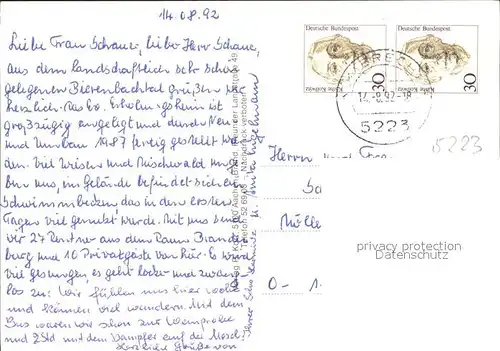 14.08.92
Liebe Frau Schanze, lieber Herr Schanze,
aus dem landschaftlich sehr schön
gelegenen Bierenbachtal grüßen wir
herzlich. Das ev. Erholungsheim ist
großzügig angelegt und durch Neu
und Umbau 1987 fertig gestellt wor
den. Viel Wiesen und Mischwald umge
ben uns, im Gelände befindet sich ein
Schwimmbecken, das in den ersten
Tagen viel genutzt wurde. Mit uns sind
wir 27 Rentner aus dem Raum Branden
burg und 10 Privatgäste von hier. Es wird
viel gesungen, es geht locker und zwang
los zu. Wir fühlen uns hier wohl
und können viel wandern. Mit dem
Bus waren wir schon zur Weinprobe
und 2 Std mit dem Dampfer auf der Mosel.
Herzliche Grüße von
Ihrer
Deutsche Bundespost
Deutsche Bundespost
Käthe Kollwitz
30
Käthe Kollwitz
30
14.-8.92-18
5223
5223
Herrn und Frau
Mölle
O - 1
privacy protection
Datenschutz